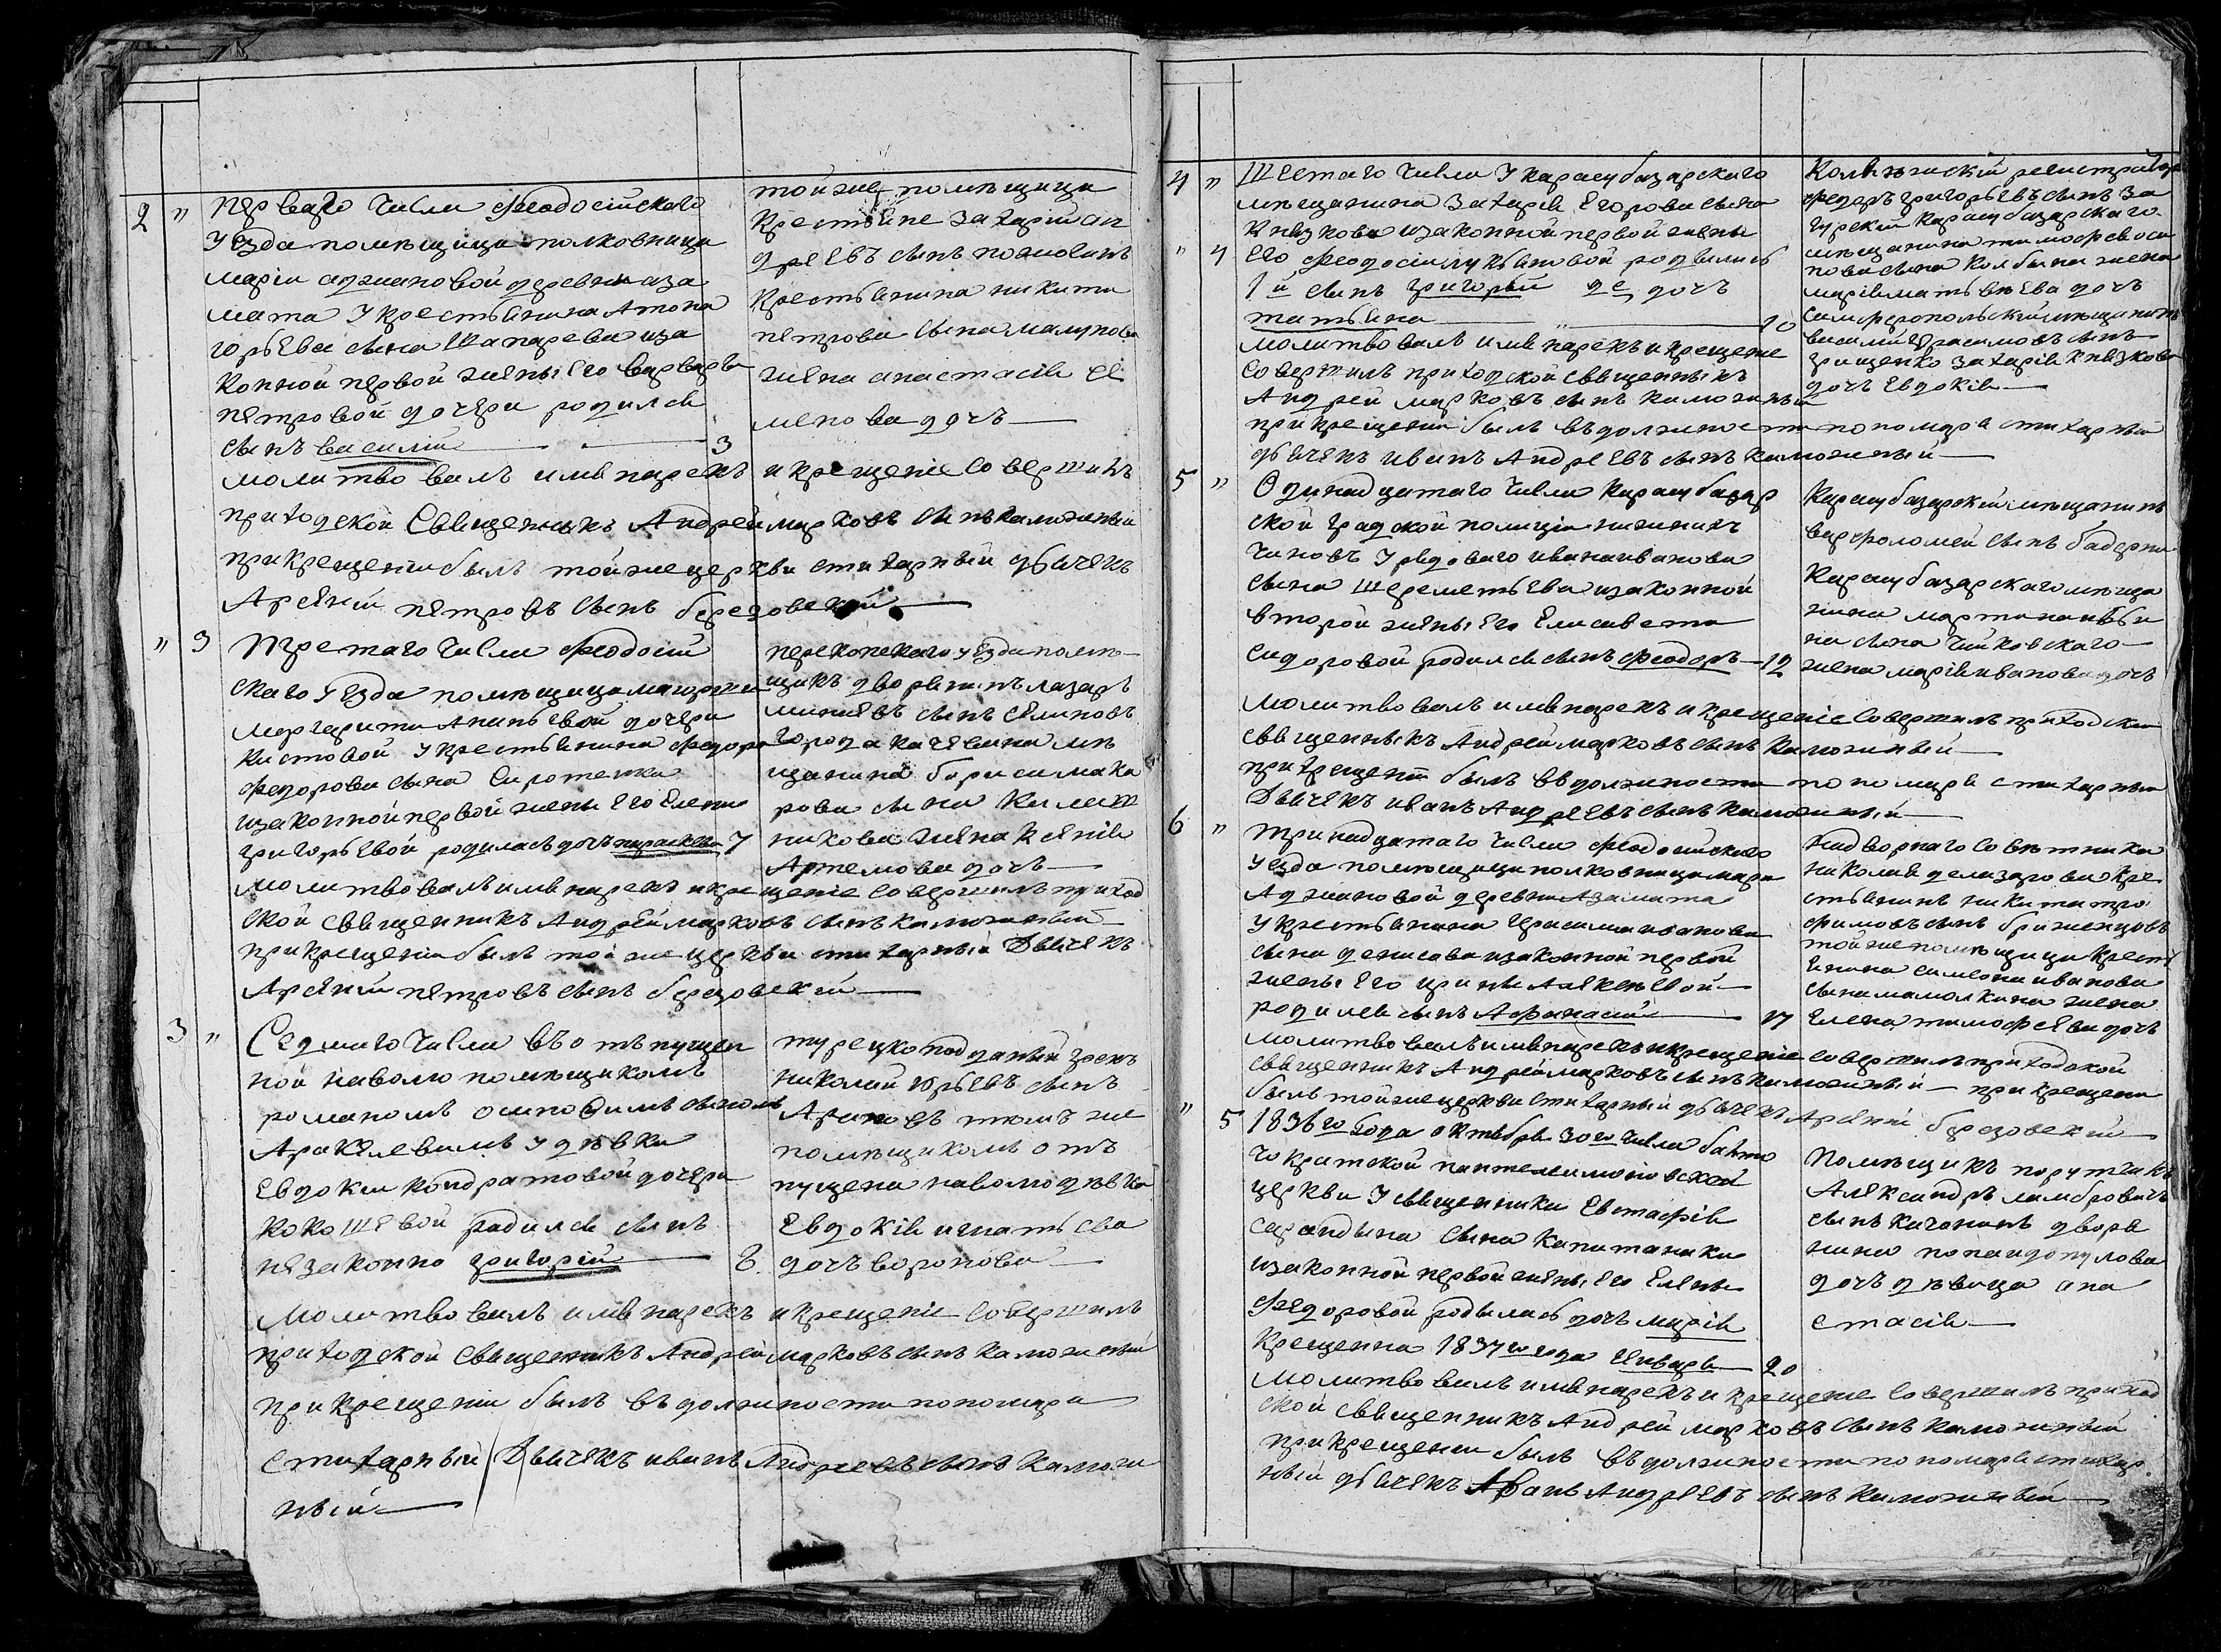 2 " перваго числа Феодосійского
уезда помѣщици полковници
маріи ажановой деревни аза
мата у крестьянина Антона
сына изза
конной первой жены его варвары
петровой дочери родился
сынъ василій 3
тойже помѣщици
крестьяне захарій ан
дреевъ сынъ
крестьянина никити
петрова сына
жена анастасія се
менова дочь
молитвовалъ имя нарекъ и крещеніе совершилъ
приходской священникъ Андрей марковъ сынъ калюжный
при крещеніи былъ тойже церкви стихарный дьячекъ
Арсеній петровъ сынъ березовскій
" 3 Третаго числа Феодосій
ского уезда помѣщици
маргарити дочери
у крестьянина федора
федорова сына Сиротенка
изаконной первой жены его елены
григорьевой родилась дочь параскева 7
перекопского уезда помѣ
щикъ дворянинъ лазарь
минаевъ сынъ
города мѣ
щанина бориса мака
рова сына калаш
никова жена ксенія
Артемова дочь
молитвовалъ имя нарекъ и крещеніе совершилъ приход
ской священникъ Андрей марковъ сынъ калюжный
при крещеніи былъ тойже церкви стихарный дьячекъ
Арсеній петровъ сынъ березовскій
3 " Седмаго числа въ отпущен
ной наволю помѣщикомъ
романомъ осиповимъ сыномъ
Аракелевимъ у дѣвки
Евдокіи кондратовой дочери
кокошевой родился сынъ
незаконно григорій 8
турецкоподданый грекъ
николай юрьевъ сынъ
темъ же
помѣщикомъ от
пущена наволю дѣвка
Евдокія игнатьева
дочь воронова
Молитвовалъ имя нарекъ и крещеніе совершилъ
приходской священникъ Андрей марковъ сынъ калюжный
при крещеніи былъ въ должности пономаря
стихарный дьячекъ иванъ Андреевъ сынъ калюж
ный
4 " Шестаго числа у карасубазарского
мѣщанина захарія Егорова сына
Князкова изаконной первой жены
" 4 Его Феодосіи лукьяновой родились
1й сынъ григорій 2е дочь
татьяна 10
Колѣжскій регистраторъ
федоръ григорьевъ сынъ за
гурскій карасубазарского
мѣщанина тимофея оси
пова сына жена
марія матвѣева дочь
симферопольскій мѣщанинъ
василій герасимовъ сынъ
грищенко захарія князкова
дочь евдокія
молитвовалъ имя нарекъ и крещеніе
совершилъ приходской священникъ
Андрей марковъ сынъ калюжный
при крещеніи былъ въ должности пономаря стихарный
дьячекъ иванъ Андреевъ сынъ калюжный
5 " Одинадцатаго числа карасубазар
ской градской полиціи нижнихъ
чиновъ у рядоваго ивана иванова
сына шереметьева изаконной
второй жены его Елисавети
сидоровой родился сынъ феодоръ 12
Карасубазарскій мѣщанинъ
варфоломей сынъ
Карасубазарского мѣща
нина мартина
сына чайковского
жена марія иванова дочь
молитвовалъ имя нарекъ и крещеніе совершилъ приходской
священникъ Андрей марковъ сынъ калюжный
при крещеніи былъ въ должности пономаря стихарный
дьячекъ иванъ Андреевъ сынъ калюжный
6 " тринадцатаго числа Феодосійского
уезда помѣщици полковници маріи
Ажановой деревни Азамата
у крестьянина герасима иванова
сына денисова изаконной первой
жены его ирины Алексѣевой
родился сынъ Афанасій 17
надворнаго совѣтника
николая делазарова кре
стьянинъ никита тро
фимовъ сынъ
тойже помѣщици крестья
нина симеона иванова
сына жена
Елена тимофеева дочь
молитвовалъ имя нарекъ и крещеніе совершилъ приходской
священникъ Андрей марковъ сынъ калюжный при крещеніи
былъ тойже церкви стихарный дьячекъ Арсеній березовскій
" 5 1836го года октября 30го числа
пантелеимоновской
церкви у священника Евстафія
сына Капитанаки
изаконной первой жены его Елены
федоровой родилась дочь марія
крещенна 1837го года Января 20
Помѣщикъ порутчикъ
Александръ ламбровичъ
сынъ качонинъ дворя
нина попандопулова
дочь дѣвица ана
стасія
Молитвовалъ имя нарекъ и крещеніе совершилъ приход
ской священникъ Андрей марковъ сынъ калюжный
при крещеніи былъ въ должности пономаря стихар
ный дьячекъ Иванъ Андреевъ сынъ калюжный